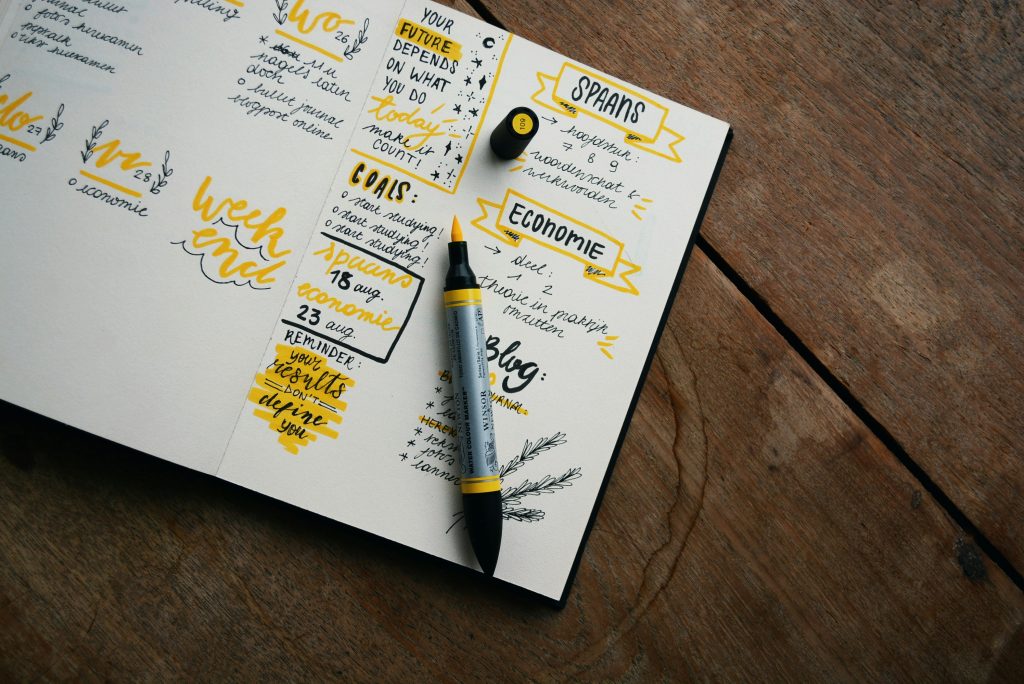 bullet
journal
o foto's herexamen
o tekst herexamen
wo
26
* nagels laten
doen
o bullet journal
blogpost online
do
27
vr
28
o economie
week
end
YOUR
FUTURE
DEPENDS
ON WHAT
YOU DO
today
make it
COUNT!
GOALS:
o start studying!
o start studying!
o start studying!
spaans
18 aug.
economie
23 aug.
REMINDER:
your
results
DON'T
define
you
SPAANS
→ hoofdstuk:
7 8 9
woordenschat &
werkwoorden
ECONOMIE
→ deel:
1 2
theorie in praktijk
omzetten
Blog:
JOURNAL:
HEREX
*
* foto's
* banner
109
WINSOR
WATER COLOUR MARKER